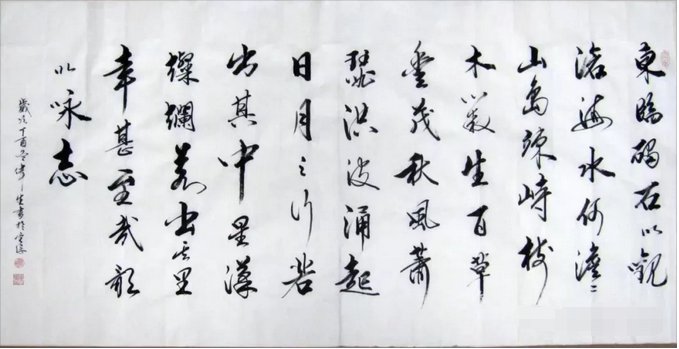 東臨碣石以觀
滄海水何澹〻
山島竦峙樹
木叢生百草
豐茂秋風蕭
瑟洪波涌起
日月之行若
出其中星漢
燦爛若出其里
幸甚至哉歌
以咏志
歲次丁酉